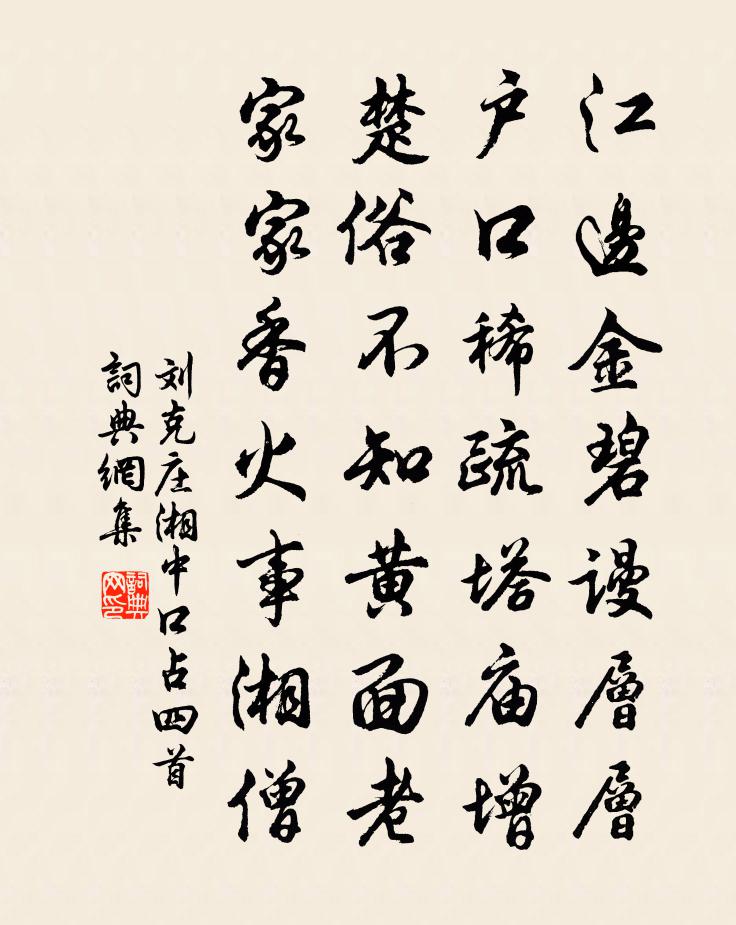 江邊金碧謾層層
户口稀疏塔庙增
楚俗不知黄面老
家家香火事湘僧
刘克庄湘中口占四首
詞典網集
詞典网印